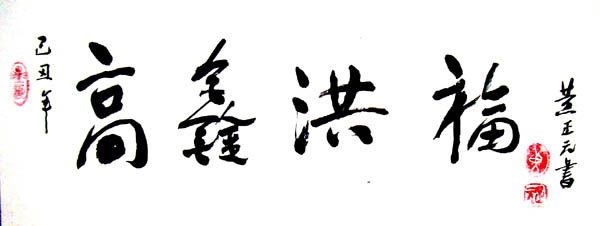 己丑年
高鑫洪福
黄正元書